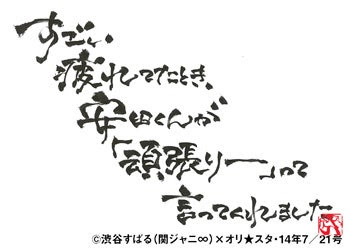 すごい
疲れてたとき、
安田くんが
「頑張りー」って
言ってくれてました
©渋谷すばる(関ジャニ∞)×オリ★スタ・14年7/21号